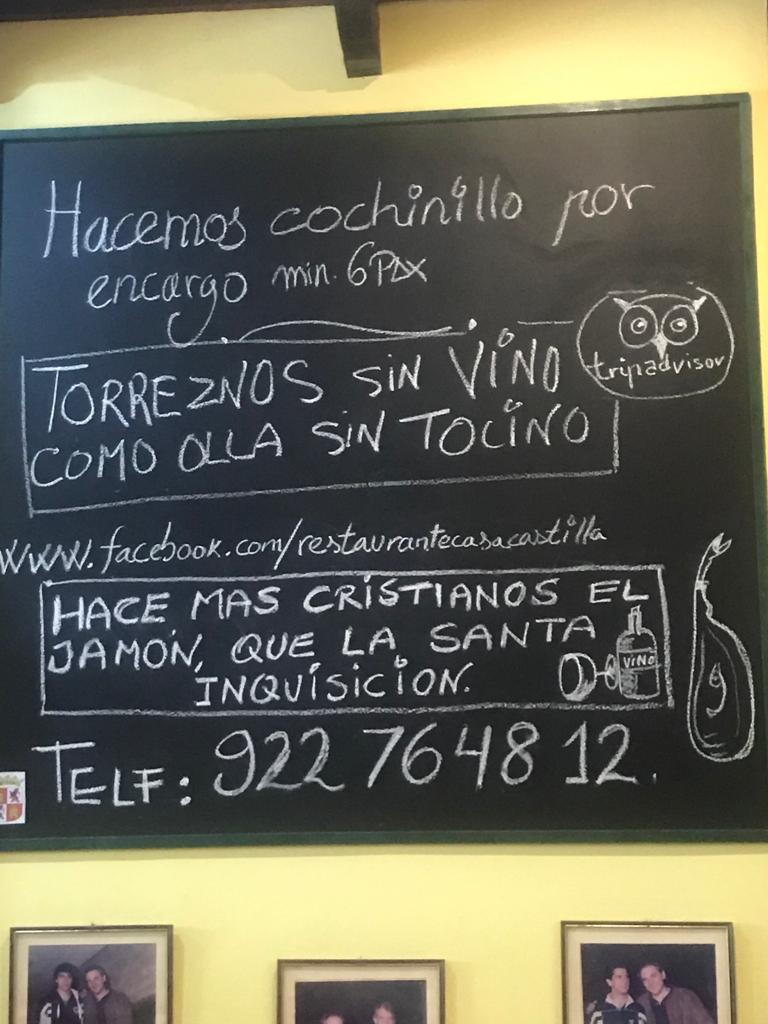 Hacemos cochinillo por
encargo min. 6 PAX
tripadvisor
TORREZNOS SIN VINO
COMO OLLA SIN TOCINO
www.facebook.com/restaurantecasacastilla
HACE MAS CRISTIANOS EL
JAMÓN, QUE LA SANTA
INQUISICION.
VINO
TELF: 922 76 48 12.